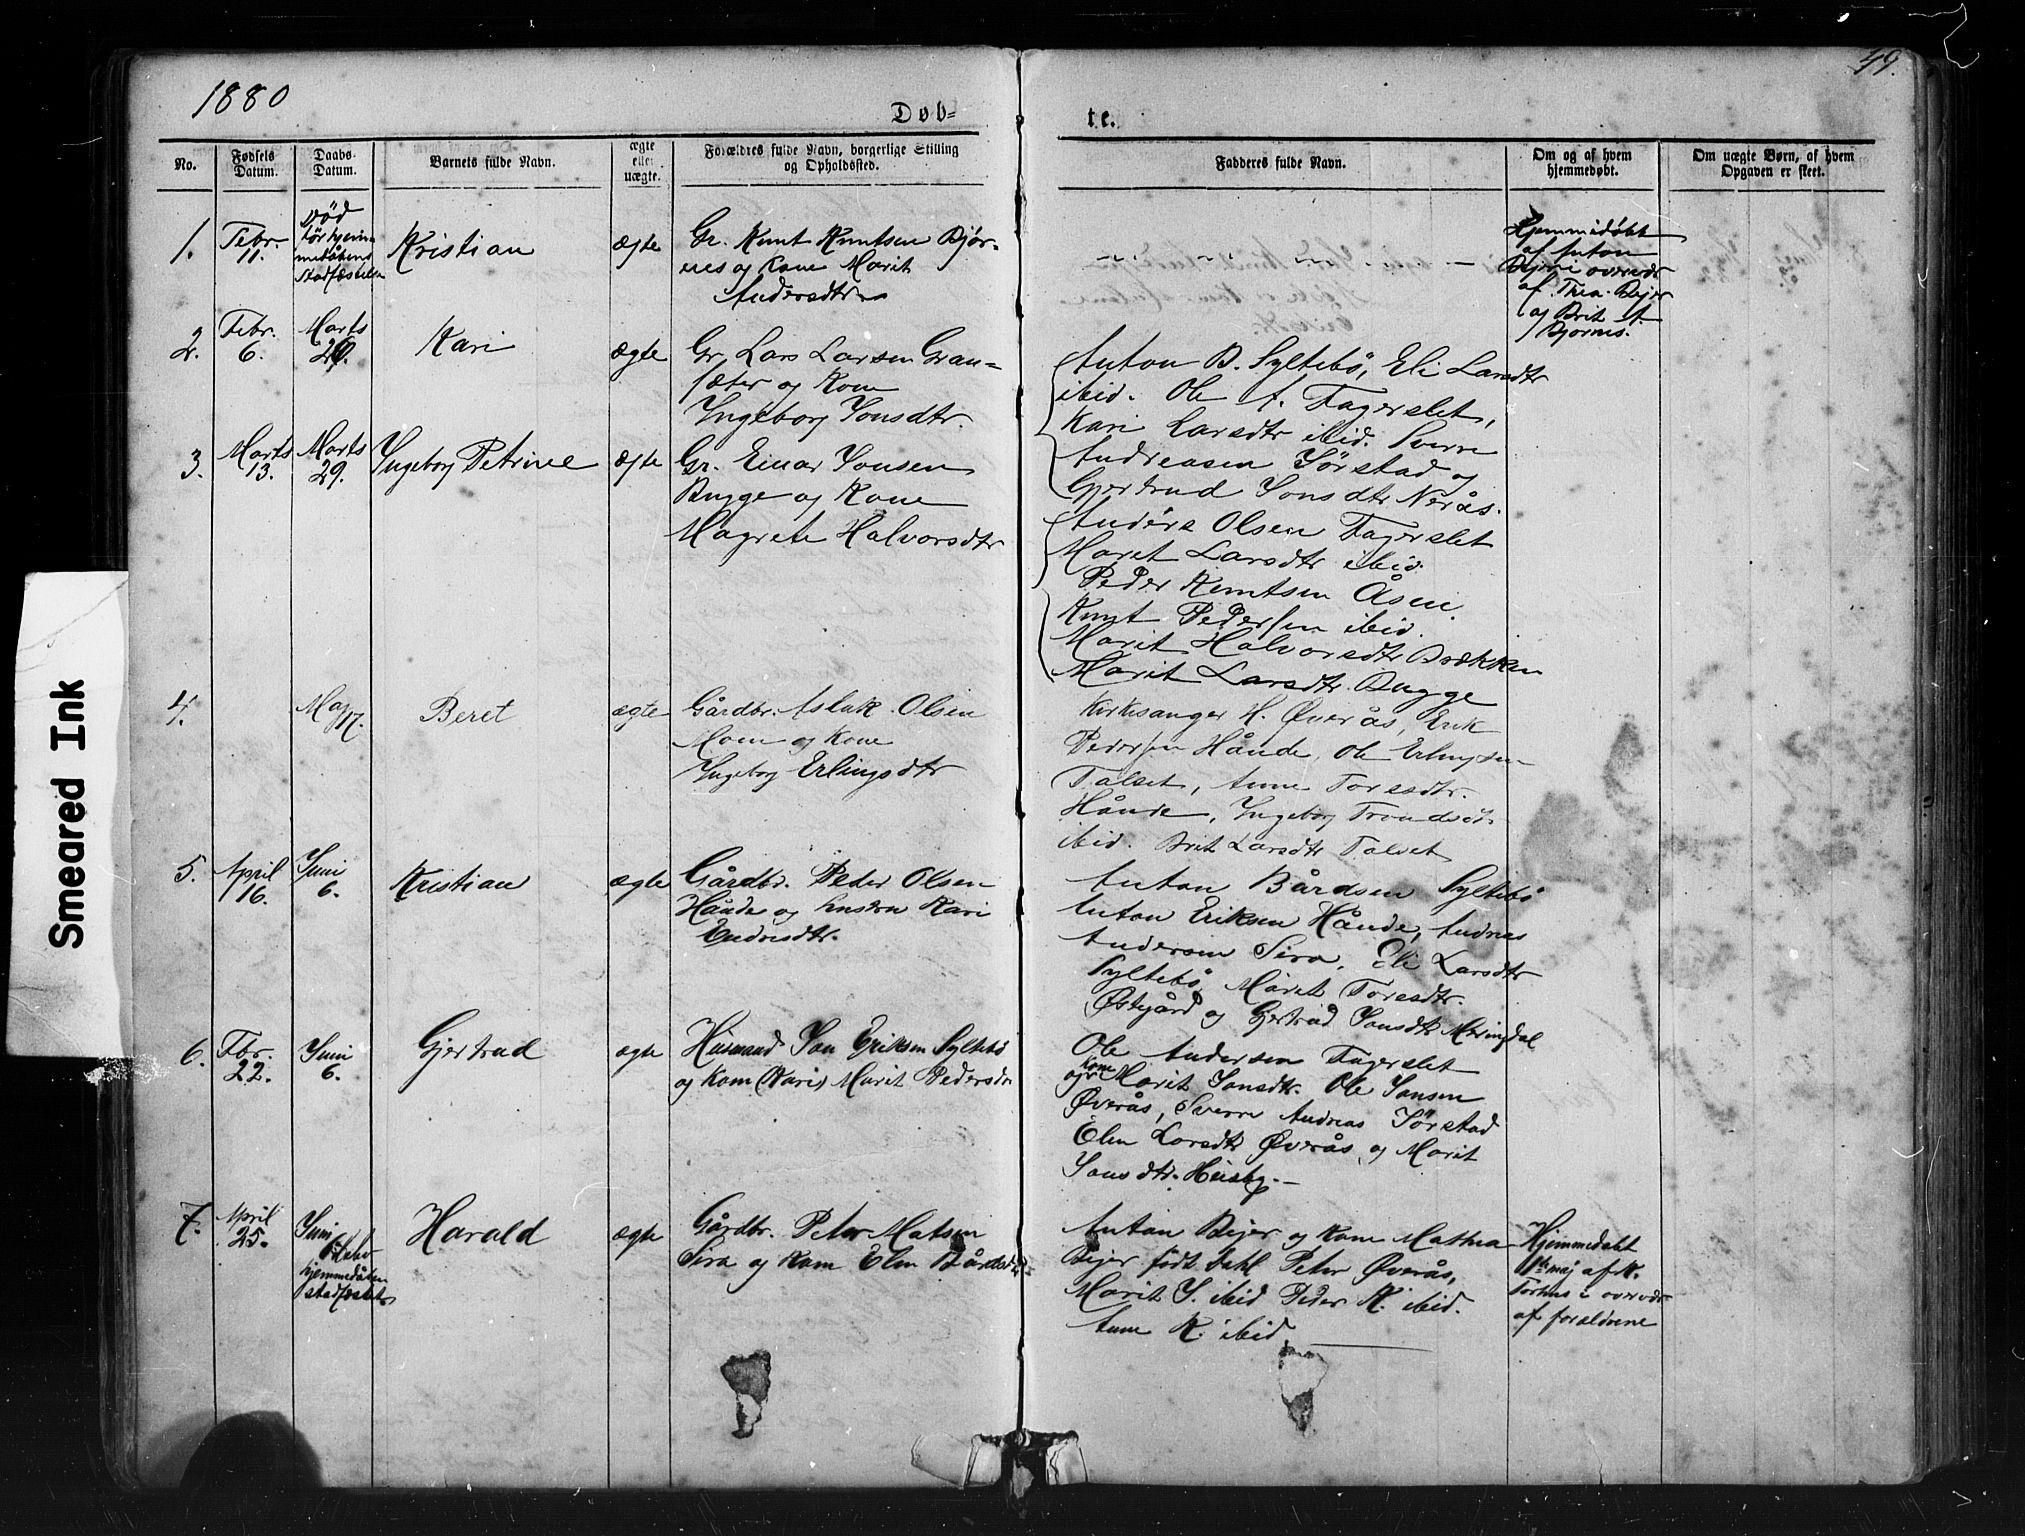 1880
49.
Døb-
te.
No.
Fødsels
Datum.
Daabs-
Datum.
Barnets fulde Navn.
ægte
eller
uægte.
Forældres fulde Navn, borgerlige Stilling
og Opholdssted.
Fadderes fulde Navn.
Om og af hvem
hjemmedøbt.
Om uægte Børn, af hvem
Opgaven er skeet.
1.
Febr.
11.
Død
før hjem-
medåbens
Stadfæstelse
Kristian
ægte
Gr. Knut Knutsen Bjør-
nes og Kone Marit
Andersdtr
Hjemmedøbt
af Anton
Bejer i overvær
af Thea Bejer
og Brit A.
Bjørnes.
2.
Febr.
6.
Marts
26.
Kari
ægte
Gr. Lars Larsen Gran-
sæter og Kone
Ingeborg Jonsdtr.
Anton B. Syltebö, Eli Larsdtr
ibid. Ole A. Fagerslet,
Kari Larsdtr ibid. Sverre
Andreasen Sörstad og
Gjertrud Jonsdtr Nerås.
3.
Marts
13.
Marts
29.
Ingeborg Petrine
ægte
Gr. Einar Jonsen
Bugge og Kone
Magrete Halvorsdtr
Anders Olsen Fagerslet
Marit Larsdtr ibid.
Peder Knutsen Åsen
Knut Pedersen ibid.
Marit Halvorsdtr Brækken
Marit Larsdtr. Bugge
4.
Maj
17.
Beret
ægte
Gårdbr. Aslak Olsen
Moen og Kone
Ingeborg Erlingsdtr
Kirkesanger H. Øverås, Erik
Pedersen Hånde, Ole Erlingsen
Talset, Anne Toresdtr.
Hånde, Ingeborg Trondsdtr
ibid. Brit Larsdtr Talset
5.
April
16.
Juni
6.
Kristian
ægte
Gårdbr. Peder Olsen
Hånde og hustru Kari
Endresdtr.
Anton Bårdsen Syltebö
Anton Eriksen Hånde, Andreas
Andersen Sira, Eli Larsdtr
Syltebö, Marit Toresdtr.
Østigård og Gjertrud Jonsdtr Meringdal
6.
Fbr.
22.
Juni
6.
Gjertrud
ægte
Husmand Jon Eriksen Syltebö
og Kone (Kari) Marit Pedersdtr
Ole Andersen Fagerslet
og Kone Marit Jonsdtr. Ole Jonsen
Øverås, Sverre Andreas Sörstad
Elen Larsdtr Øverås, og Marit
Jonsdtr. Heisby.—
7.
April
25.
Juni
6
hjemmedåben
stadfæstet
Harald
ægte
Gårdbr. Peter Matsen
Sira og Kone Elen Bårdsdtr.
Anton Bejer og Kone Mathea
Bejer født Dahl Peter Øverås,
Marit J. ibid Peder K. ibid.
Anne K. ibid.
Hjemmedøbt
1ste maj af K.
i overvær
af forældrene
Smeared Ink